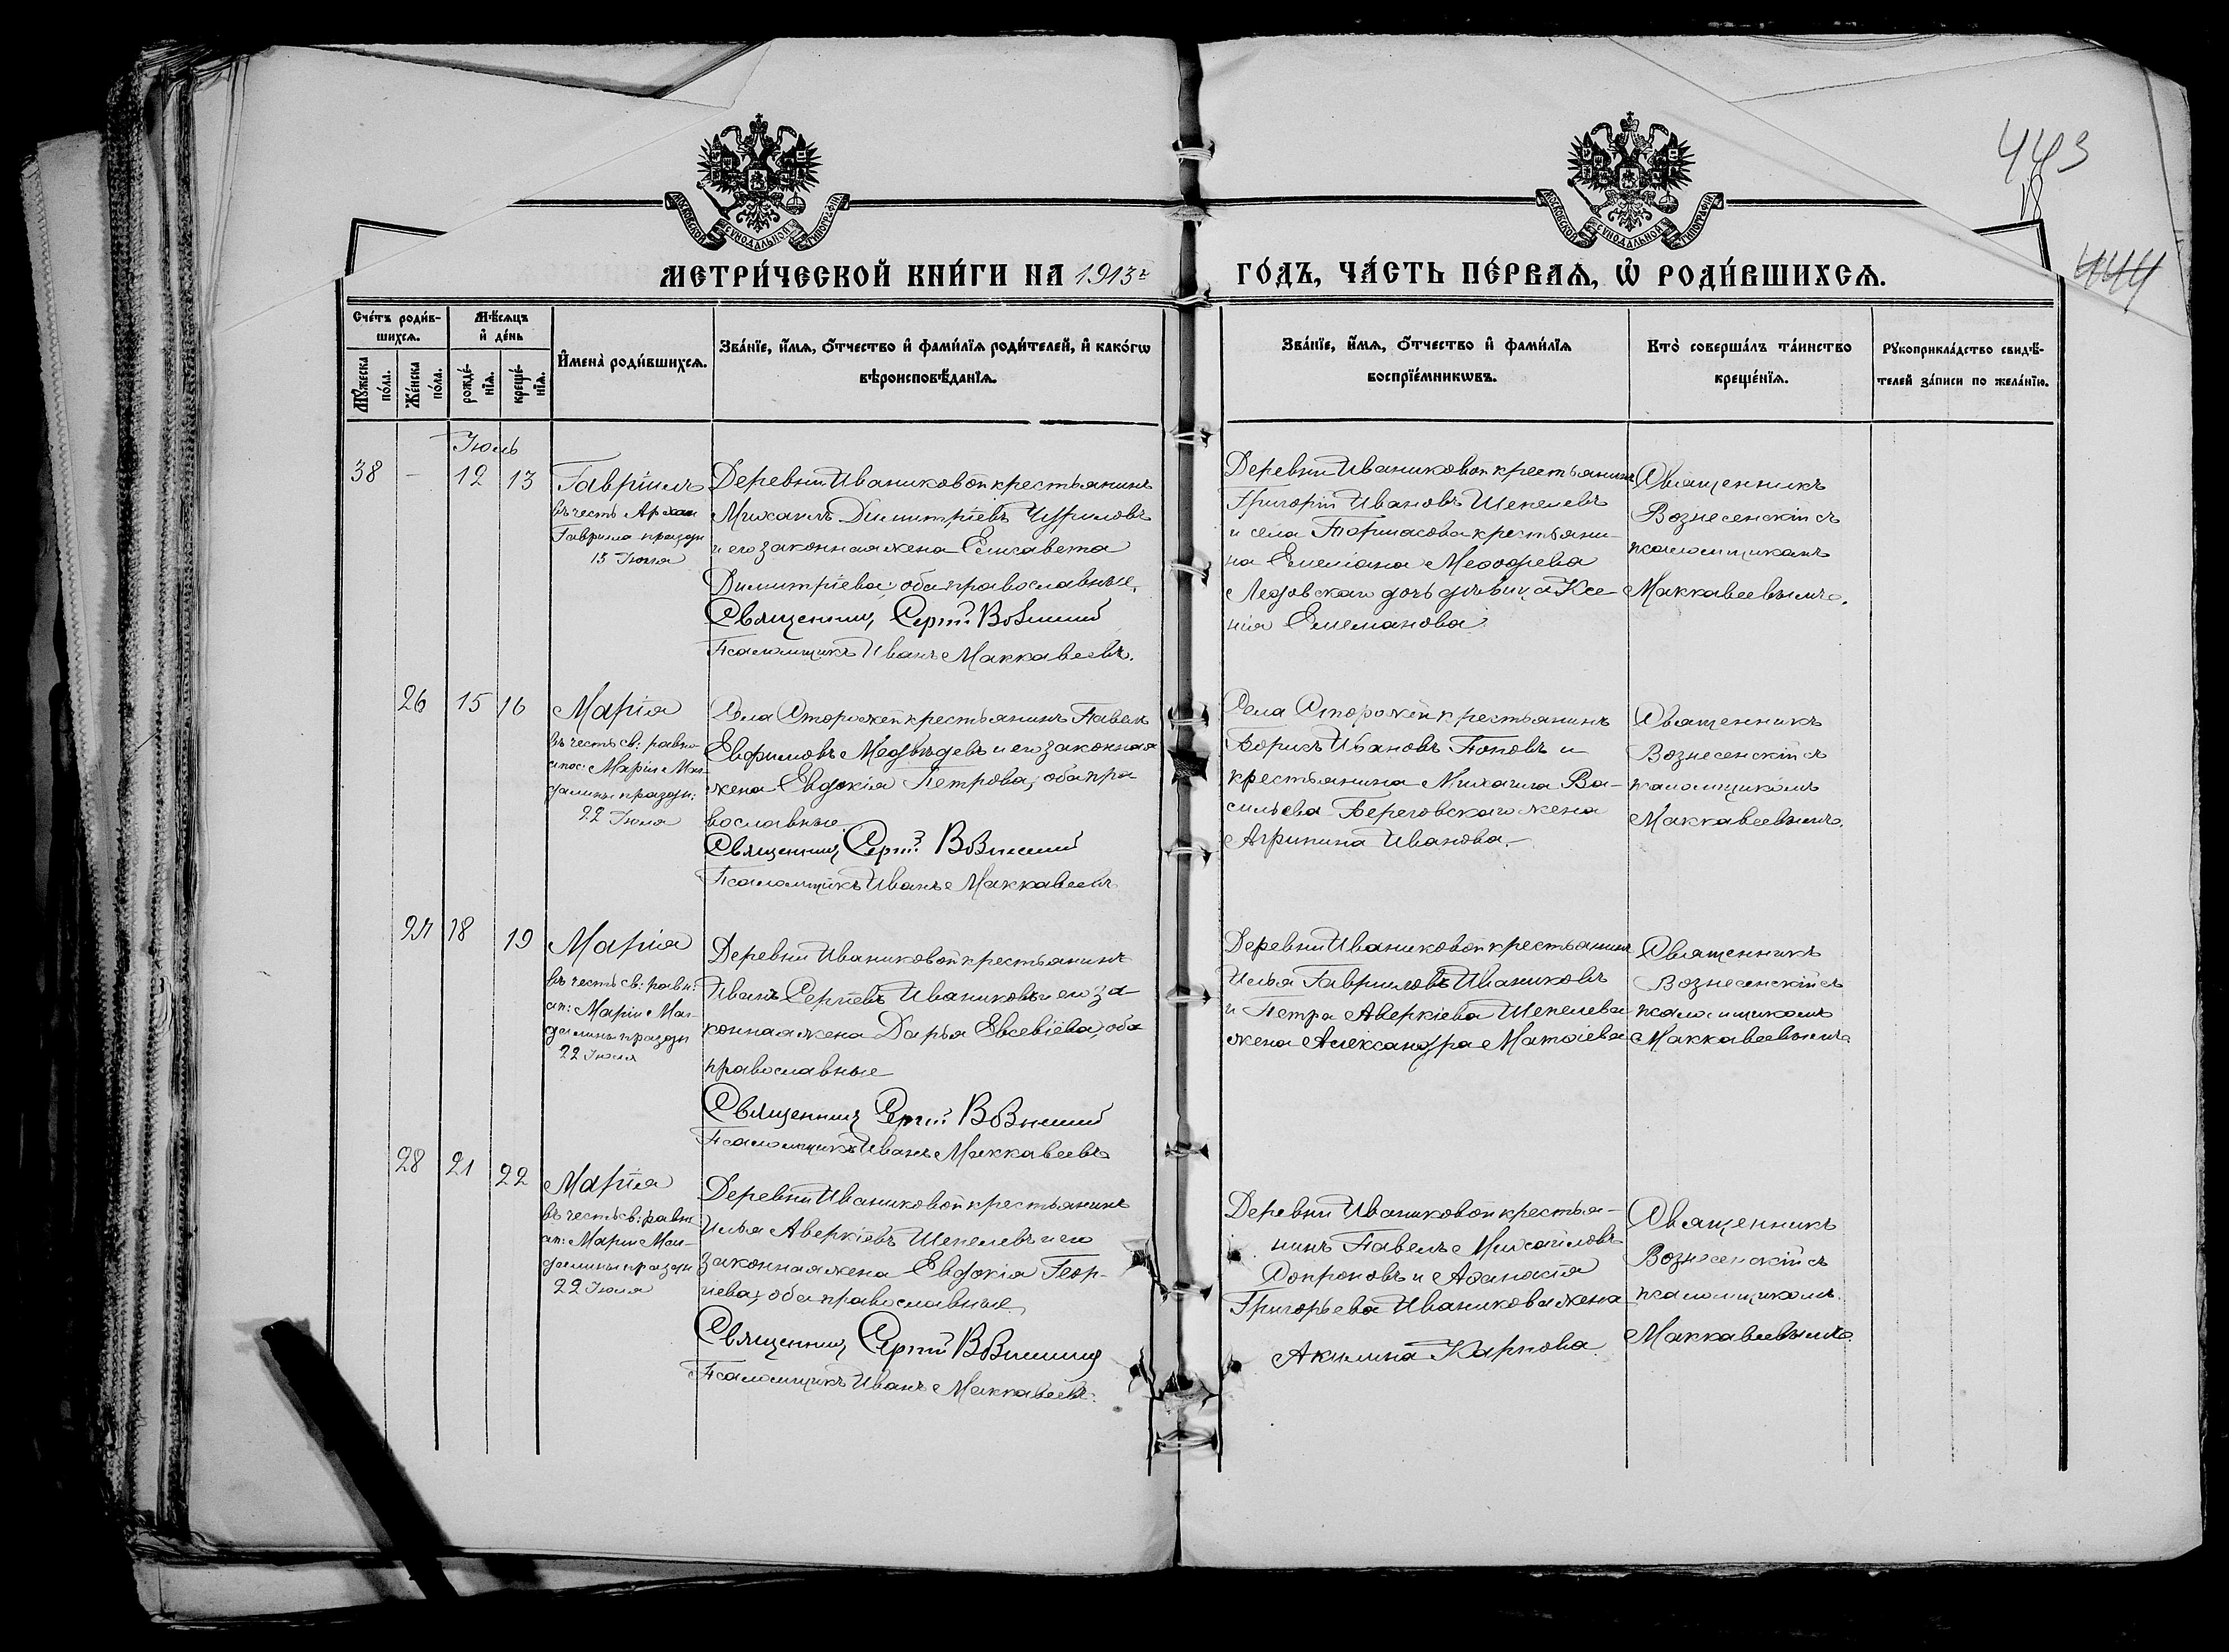 443
18
444
МОСКОВСКОЙ СѴНОДАЛЬНОЙ ТИПОГРАФІИ
МОСКОВСКОЙ СѴНОДАЛЬНОЙ ТИПОГРАФІИ
МЕТРИ́ЧЕСКОЙ КНИ́ГИ НА 1913 г.
ГО́ДЪ, ЧА́СТЬ ПЕ́РВАѦ, Ѡ҆ РОДИ́ВШИХСѦ.
Сче́тъ роди́в-
шихсѧ.
Мꙋ́жеска
по́ла.
Же́нска
по́ла.
Мѣ́сѧцъ
и҆ де́нь
рожде́-
нїѧ.
креще́-
нїѧ.
И҆мена̀ роди́вшихсѧ.
Зва́нїе, и҆́мѧ, ѻ҆́тчество и҆ фами́лїѧ роди́телей, и҆ како́гѡ
вѣроисповѣ́данїѧ.
Зва́нїе, и҆́мѧ, ѻ҆́тчество и҆ фами́лїѧ
воспрїе́мникѡвъ.
Кто̀ соверша́лъ та́инство
креще́нїѧ.
Рꙋкоприкла́дство свидѣ́-
телей за́писи по жела́нїю.
Іюль
38 - 12 13
Гавріилъ
въ честь Архан
Гавріила праздн
13 Іюля
Деревни Иваниковой крестьянинъ
Михаилъ Димитріевъ
и его законная жена Елисавета
Димитріева; оба православные.
Священникъ Сергій
Псаломщикъ Иванъ Маккавеевъ.
Деревни Иваниковой крестьянинъ
Григорій Ивановъ Шепелевъ
и села крестьяни-
на Емеліана Меѳодіева
Ледовскаго дочь дѣвица Ксе-
нія Емелианова
Священникъ
Вознесенскій съ
псаломщикомъ
Маккавеевымъ.
26 15 16
Марія
въ честь св: равно
апос: Маріи Маг-
далины праздн:
22 Іюля
Села Сторожей крестьянинъ Павелъ
Евфимовъ Медвѣдевъ и его законная
жена Евдокія Петрова; оба пра
вославные.
Священникъ Сергій
Псаломщикъ Иванъ Маккавеевъ
Села Сторожей крестьянинъ
Борисъ Ивановъ Поповъ и
крестьянина Михаила Ва-
сильева Береговскаго жена
Агрипина Иванова.
Священникъ
Вознесенскій съ
псаломщикомъ
Маккавеевымъ.
27 18 19
Марія
въ честь св: равн:
ап: Маріи Маг-
далины праздн
22 Іюля
Деревни Иваниковой крестьянинъ
Иванъ Сергіевъ Иваниковъ и его за-
конная жена Дарья Евсевіева; оба
православные
Священникъ Сергій
Псаломщикъ Иванъ Маккавеевъ
Деревни Иваниковой крестьянинъ
Илья Гавриловъ Иваниковъ
и Петра Аверкіева Шепелева
жена Александра Матѳіева
Священникъ
Вознесенскій съ
псаломщикомъ
Маккавеевымъ
28 21 22
Марія
въ честь св: равн
ап: Маріи Маг-
далины праздн
22 Іюля
Деревни Иваниковой крестьянинъ
Илья Аверкіевъ Шепелевъ и его
законная жена Евдокія Геор-
гіева; оба православные.
Священникъ Сергій
Псаломщикъ Иванъ Маккавеевъ.
Деревни Иваниковой крестья-
нинъ Павелъ Михаиловъ
Сопроновъ и Аѳанасія
Григорьева Иваникова жена
Акилина Карпова.
Священникъ
Вознесенскій съ
псаломщикомъ.
Маккавеевымъ.